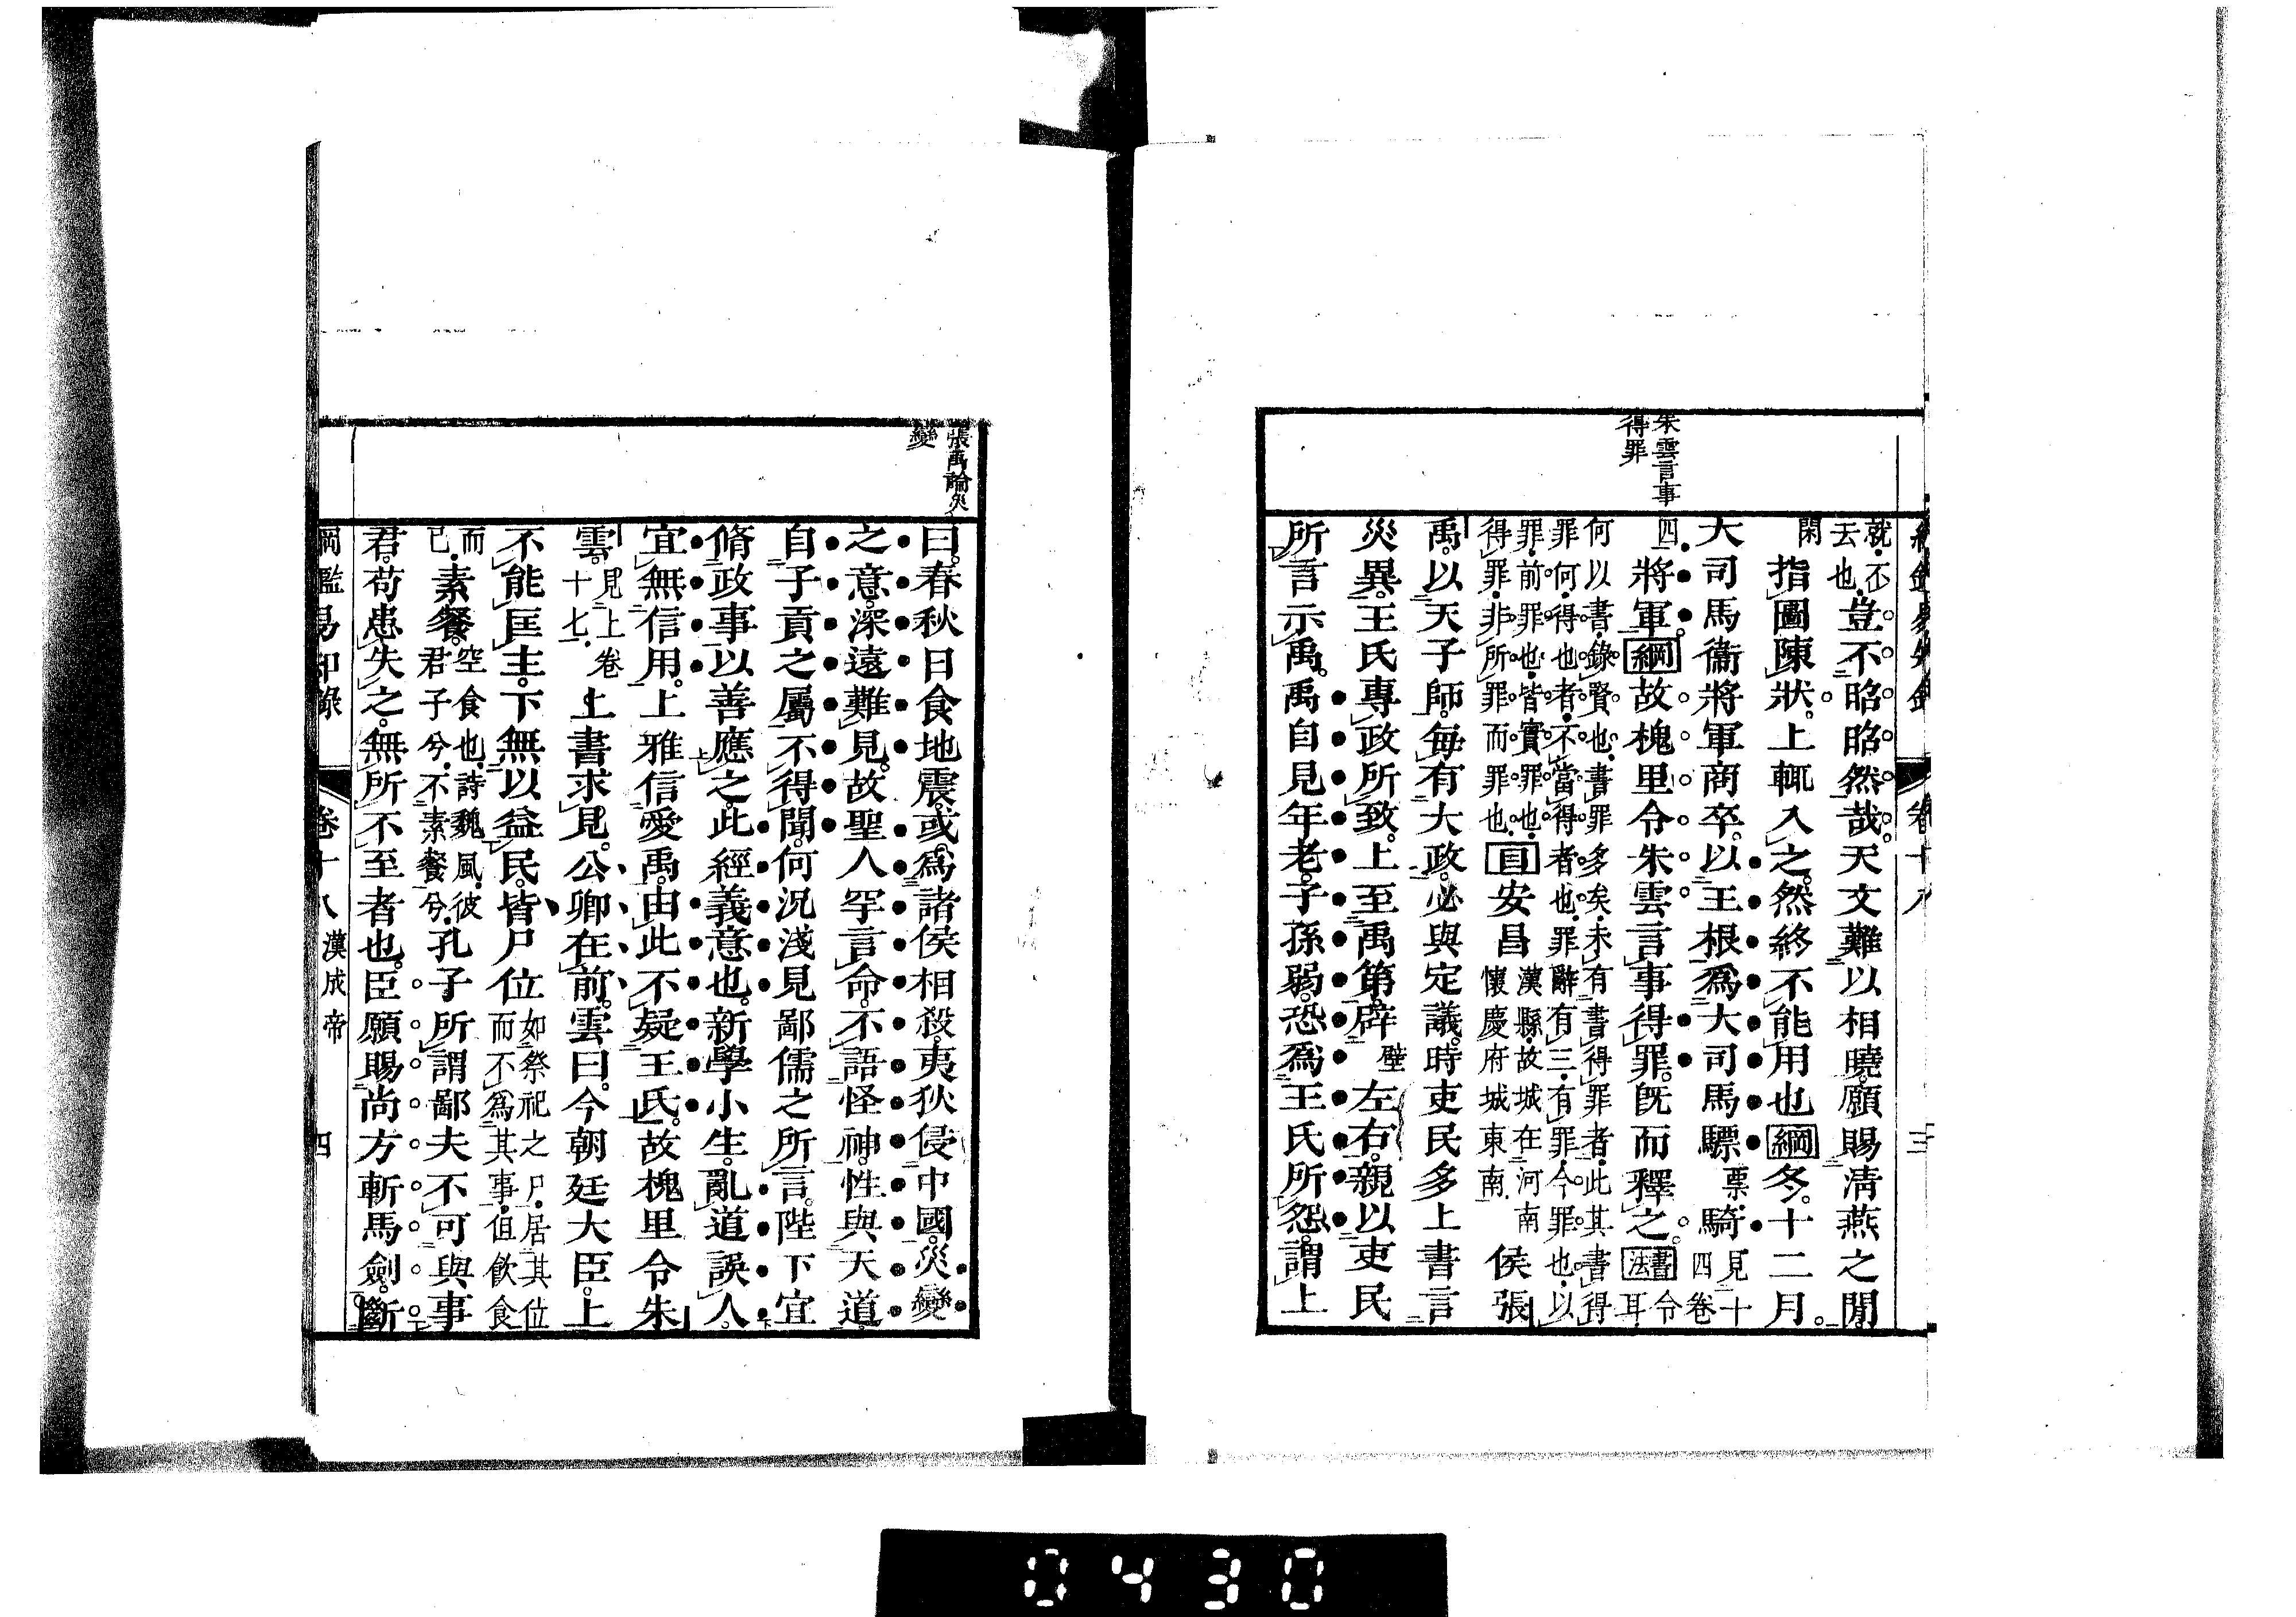 朱雲言事
得罪
就。不
去也。
豈不昭昭然哉。天文難以相曉。願賜淸燕之閒。
閑
指圖陳狀。上輒入之。然終不能用也綱冬。十二月。
大司馬衞將軍商卒。以王根爲大司馬驃
票
騎
見十
四卷
四
將軍綱故槐里令朱雲言事得罪。旣而釋之。
書法
令
耳
何以書。錄賢也。書罪多矣。未有書得罪者。此其書得
罪何。得也者。不當得者也。罪辭有三。有罪。今罪也。以
罪。前罪也。皆實罪也。
得罪。非所罪而罪也。
目安昌
漢縣。故城在河南
懷慶府城東南。
侯張
禹。以天子師。每有大政。必與定議。時吏民多上書言
災異。王氏專政所致。上至禹第。辟
壁
左右。親以吏民
所言示禹。禹自見年老。子孫弱。恐爲王氏所怨。謂上
張禹論災
變
曰。春秋日食地震。或爲諸侯相殺。夷狄侵中國。災變
之意。深遠難見。故聖人罕言命。不語怪神。性與天道。
自子貢之屬不得聞。何況淺見鄙儒之所言。陛下宜
脩政事以善應之。此經義意也。新學小生。亂道誤人。
宜無信用。上雅信愛禹。由此不疑王氏。故槐里令朱
雲。
見上卷
十七。
上書求見。公卿在前。雲曰。今朝廷大臣。上
不能匡主。下無以益民。皆尸位
如祭祀之尸。居其位
而不爲其事。但飮食
而
已。
素餐。
空食也。詩魏風。彼
君子兮。不素餐兮。
孔子所謂鄙夫不可與事
君。苟患失之。無所不至者也。臣願賜尚方斬馬劍。斷
綱鑑易知錄
卷十八
漢成帝
四